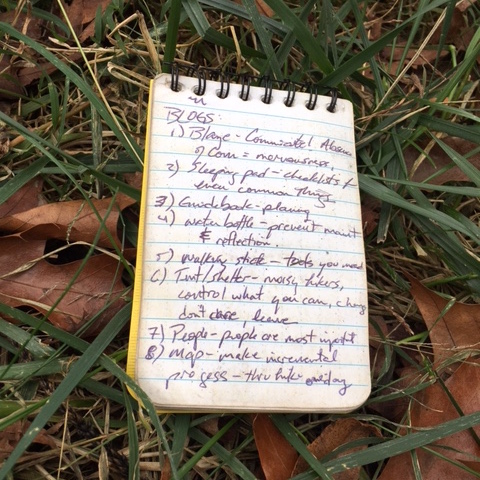 BLOGS:
1) Blaze - Communicated Absence
of Com = nervousness,
2) Sleeping pad - checklists for
even common things
3) Guidebook - planning
4) water bottle - prevent maint
& reflection.
5) walking stick - tools you need
6) Tent/shelter - noisy hikers,
control what you can, change
don't care, leave
7) People - people are most import
8) Map - make incremental
progress - thru hike one day